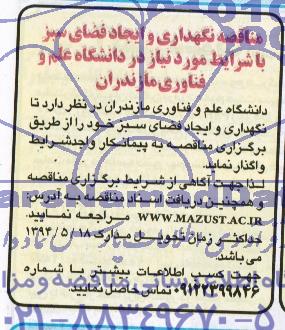 مناقصه نگهداری و ایجاد فضای سبز
با شرایط مورد نیاز در دانشگاه علم و
فناوری مازندران
دانشگاه علم و فناوری مازندران در نظر دارد تا
نگهداری و ایجاد فضای سبز خود را از طریق
برگزاری مناقصه به پیمانکار واجد شرایط
واگذار نماید.
لذا جهت آگاهی از شرایط برگزاری مناقصه
و همچنین دریافت اسناد مناقصه به آدرس
WWW.MAZUST.AC.IR مراجعه نمایید.
حداکثر زمان تحویل مدارک ۱۳۹۴/۵/۱۸
می باشد.
جهت کسب اطلاعات بیشتر با شماره
۰۹۱۲۲۳۹۹۸۴۶ تماس حاصل نمایید.
۰۲۱-۸۸۳۴۹۶۷۰-۵